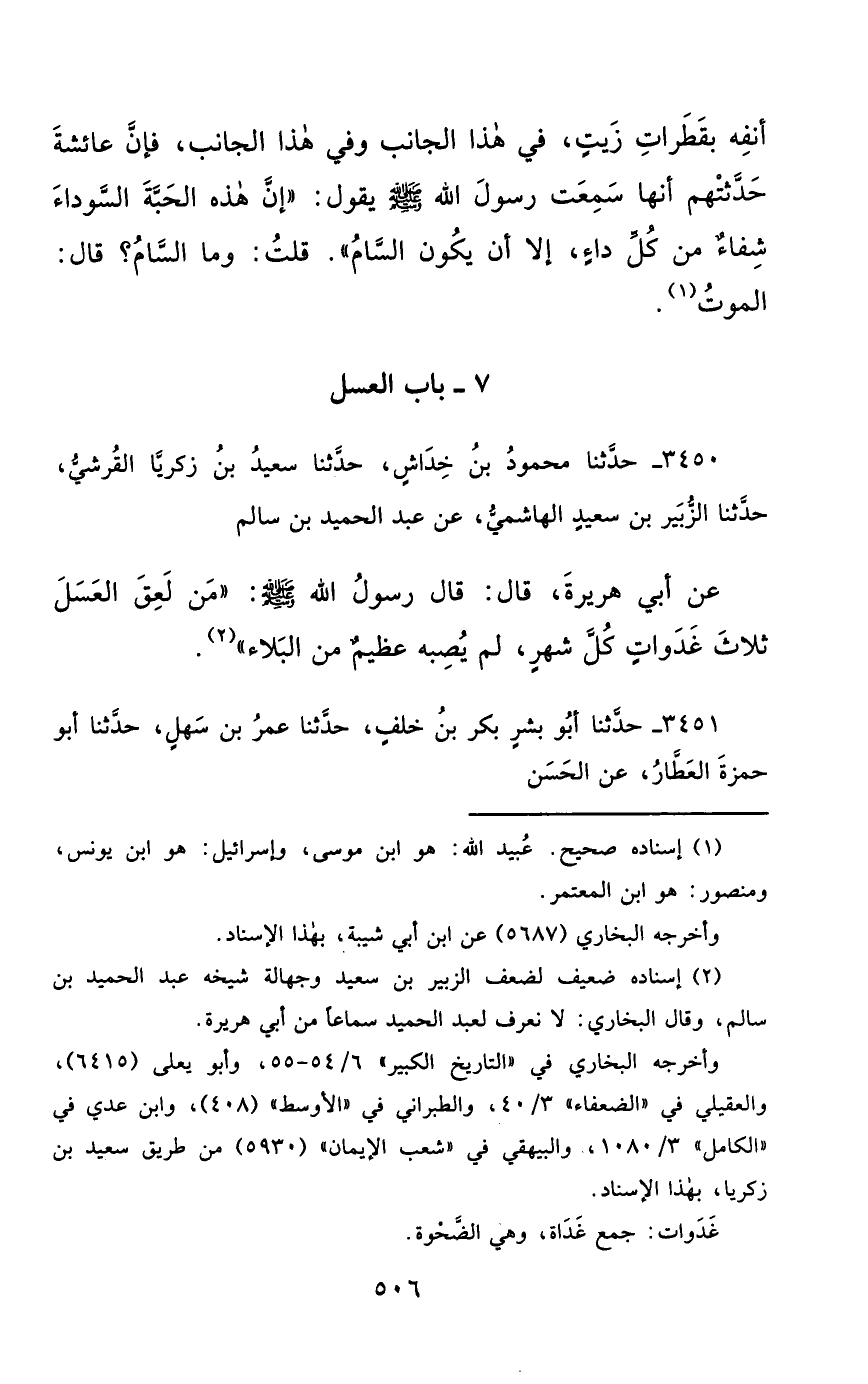 أنفِه بقَطَراتِ زَيتٍ، في هٰذا الجانب وفي هٰذا الجانب، فإنَّ عائشةَ
حَدَّثتْهم أنها سَمِعَت رسولَ الله ﷺ يقول: «إنَّ هٰذه الحَبَّةَ السَّوداءَ
شِفاءٌ من كُلِّ داءٍ، إلا أن يكُون السَّامُ». قلتُ: وما السَّامُ؟ قال:
الموتُ(١).
٧ ـ باب العسل
٣٤٥٠ـ حدَّثنا محمودُ بنُ خِدَاشٍ، حدَّثنا سعيدُ بنُ زكريَّا القُرشيُّ،
حدَّثنا الزُّبَير بن سعيدٍ الهاشميُّ، عن عبد الحميد بن سالم
عن أبي هريرةَ، قال: قال رسولُ الله ﷺ: «مَن لَعِقَ العَسَلَ
ثلاثَ غَدَواتٍ كُلَّ شهرٍ، لم يُصِبه عظيمٌ من البَلاء»(٢).
٣٤٥١ـ حدَّثنا أبُو بشرٍ بكر بنُ خلفٍ، حدَّثنا عمرُ بن سَهلٍ، حدَّثنا أبو
حمزةَ العَطَّارُ، عن الحَسَن
(١) إسناده صحيح. عُبيد الله: هو ابن موسى، وإسرائيل: هو ابن يونس،
ومنصور: هو ابن المعتمر.
وأخرجه البخاري (٥٦٨٧) عن ابن أبي شيبة، بهٰذا الإسناد.
(٢) إسناده ضعيف لضعف الزبير بن سعيد وجهالة شيخه عبد الحميد بن
سالم، وقال البخاري: لا نعرف لعبد الحميد سماعاً من أبي هريرة.
وأخرجه البخاري في «التاريخ الكبير» ٦/ ٥٤-٥٥، وأبو يعلى (٦٤١٥)،
والعقيلي في «الضعفاء» ٣/ ٤٠، والطبراني في «الأوسط» (٤٠٨)، وابن عدي في
«الكامل» ٣/ ١٠٨٠، والبيهقي في «شعب الإيمان» (٥٩٣٠) من طريق سعيد بن
زكريا، بهٰذا الإسناد.
غَدَوات: جمع غَدَاة، وهي الضَّحْوة.
٥٠٦